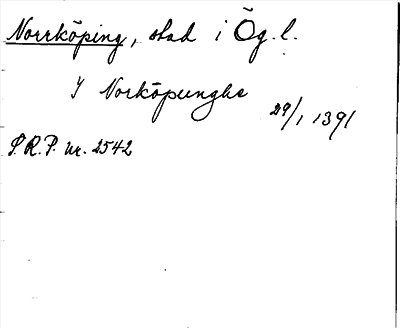 Norrköping, stad i Ög.l.
I Norköpunghe
29/1 1391
S.R.P. nr. 2542